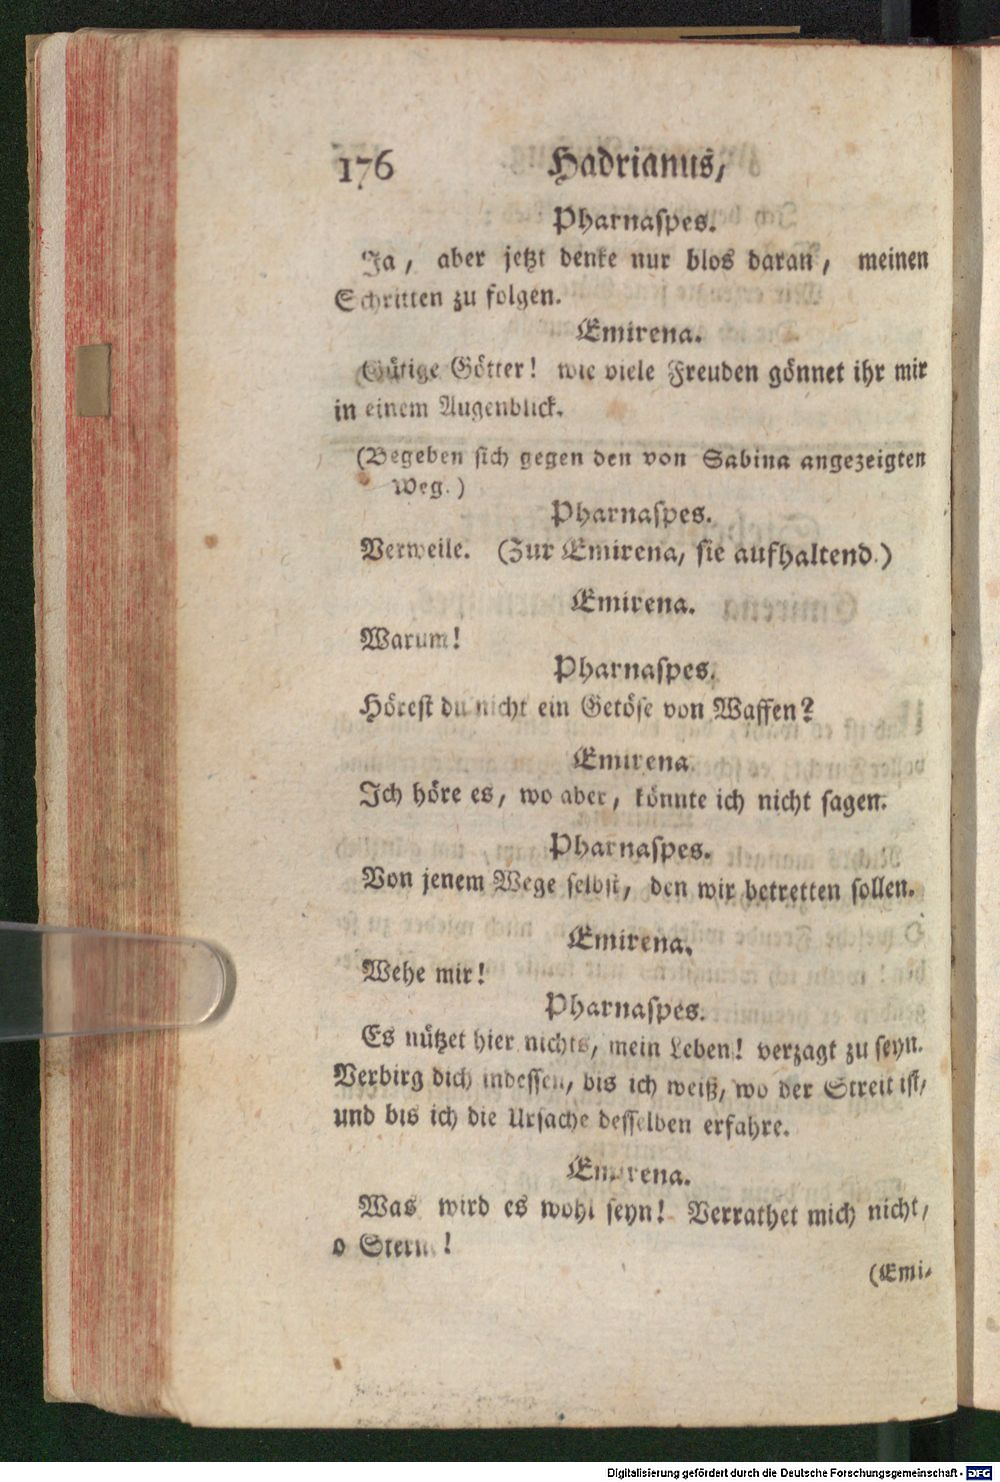 176 Hadrianus,
Pharnaſpes.
Ja, aber jetzt denke nur blos daran, meinen
Schritten zu folgen.
Emirena.
Gütige Götter! wie viele Freuden gönnet ihr mir
in einem Augenblick.
(Begeben ſich gegen den von Sabina angezeigten
Weg.)
Pharnaſpes.
Verweile. (Zur Emirena, ſie aufhaltend.)
Emirena.
Warum!
Pharnaſpes.
Höreſt du nicht ein Getöſe von Waffen?
Emirena.
Ich höre es, wo aber, könnte ich nicht ſagen.
Pharnaſpes.
Von jenem Wege ſelbſt, den wir betretten ſollen.
Emirena.
Wehe mir!
Pharnaſpes.
Es nützet hier nichts, mein Leben! verzagt zu ſeyn.
Verbirg dich indeſſen, bis ich weiß, wo der Streit iſt,
und bis ich die Urſache deſſelben erfahre.
Emirena.
Was wird es wohl ſeyn! Verrathet mich nicht,
o Stern!
(Emi-
Digitalisierung gefördert durch die Deutsche Forschungsgemeinschaft - DFG